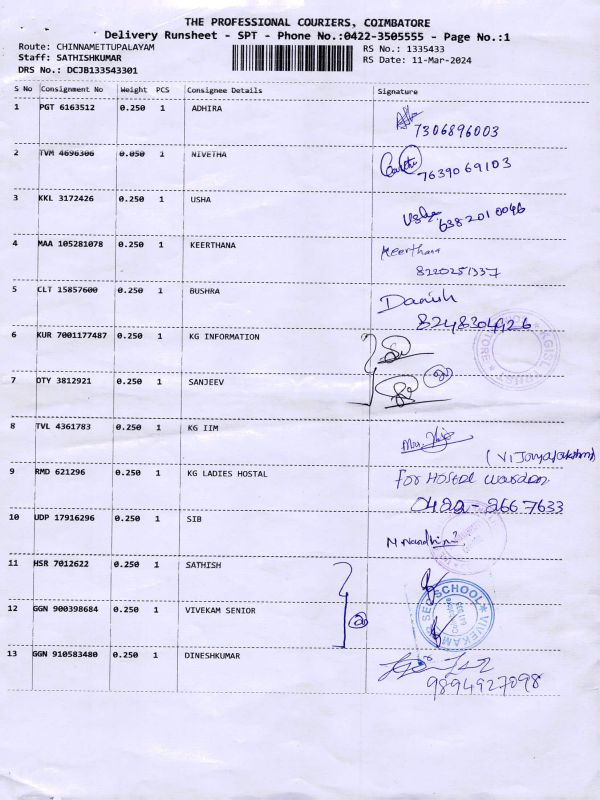 THE PROFESSIONAL COURIERS, COIMBATORE
Delivery Runsheet - SPT - Phone No.:0422-3505555 - Page No.:1
Route: CHINNAMETTUPALAYAM RS No.: 1335433
Staff: SATHISHKUMAR RS Date: 11-Mar-2024
DRS No.: DCJB133543301
S No Consignment No Weight PCS Consignee Details Signature
1 PGT 6163512 0.250 1 ADHIRA
7306896003
2 TVM 4696306 0.050 1 NIVETHA
7639069103
3 KKL 3172426 0.250 1 USHA
Usha
6382010046
4 MAA 105281078 0.250 1 KEERTHANA Keerthana
8220251337
5 CLT 15857600 0.250 1 BUSHRA Danish
8248304926
6 KUR 7001177487 0.250 1 KG INFORMATION
7 OTY 3812921 0.250 1 SANJEEV
8 TVL 4361783 0.250 1 KG IIM
(Vijayalakshmi)
9 RMD 621296 0.250 1 KG LADIES HOSTAL For Hostel warden
0422-2667633
10 UDP 17916296 0.250 1 SIB
M.Nandhini
11 HSR 7012622 0.250 1 SATHISH
12 GGN 900398684 0.250 1 VIVEKAM SENIOR
VIVEKAM SEN SCHOOL
13 GGN 910583480 0.250 1 DINESHKUMAR
9894927098